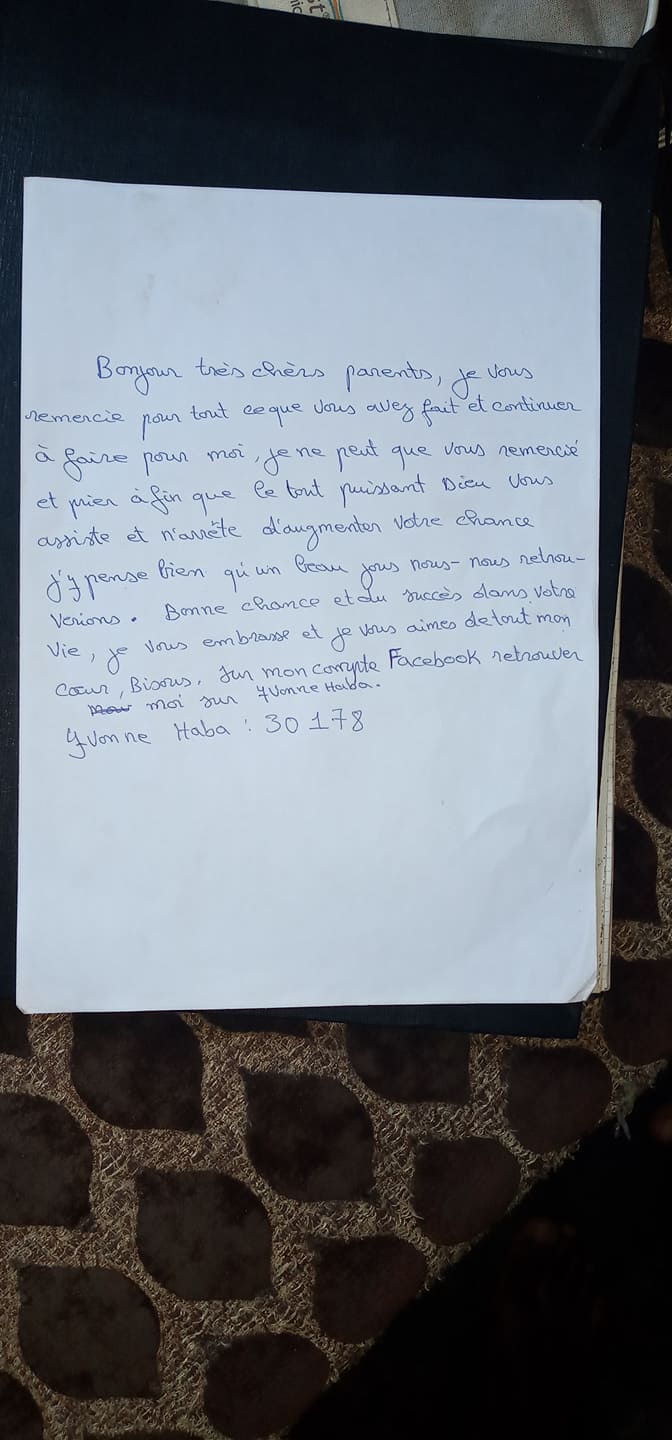 Bonjour très chèrs parents, je vous
remercie pour tout ce que vous avez fait et continuer
à faire pour moi, je ne peut que vous remercié
et prier àfin que le tout puissant Dieu vous
assiste et n'arrête d'augmenter votre chance
j'y pense bien qu'un beau jous nous-nous retrou-
verions. Bonne chance et du succès dans votre
vie, je vous embrasse et je vous aimes de tout mon
cœur, Bisous, sur mon compte Facebook retrouver
moi sur Yvonne Haba.
Yvonne Haba : 30178